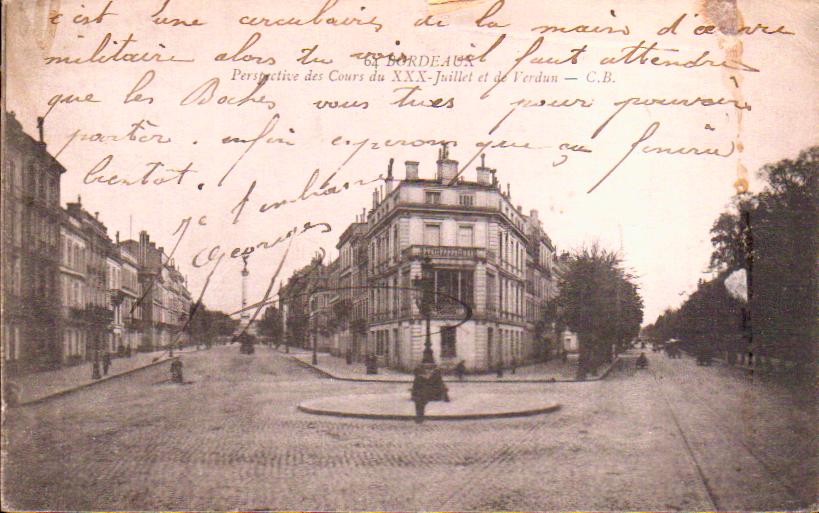 c'est une circulaire de la main d'œuvre
militaire alors tu vois il faut attendre
64 BORDEAUX
Perspective des Cours du XXX-Juillet et de Verdun — C. B.
que les Boches vous tues pour pouvoir
partir. enfin esperons que ça finira
bientot.
Je t'embrasse
Georges